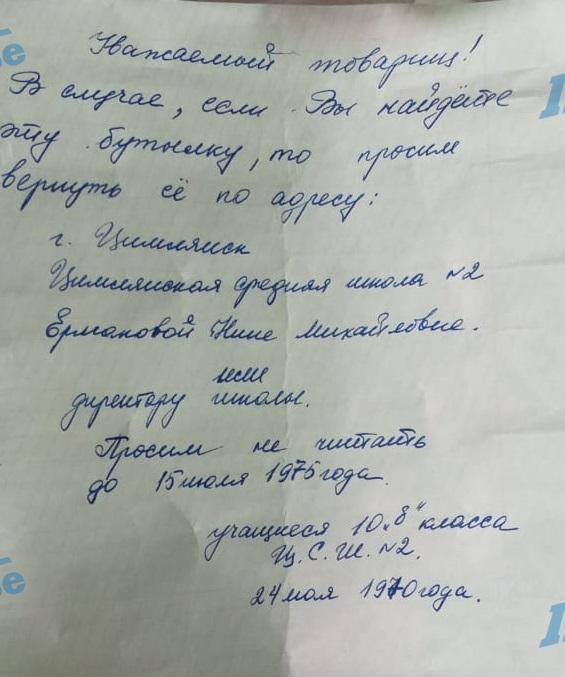 Уважаемый товарищ!
В случае, если Вы найдёте
эту бутылку, то просим
вернуть её по адресу:
г. Цимлянск
Цимлянская средняя школа №2
Ермановой Нине Михайловне.
или
директору школы.
Просим не читать
до 15 июля 1975 года.
учащиеся 10 „б" класса
Ц. С. Ш. №2.
24 мая 1970 года.